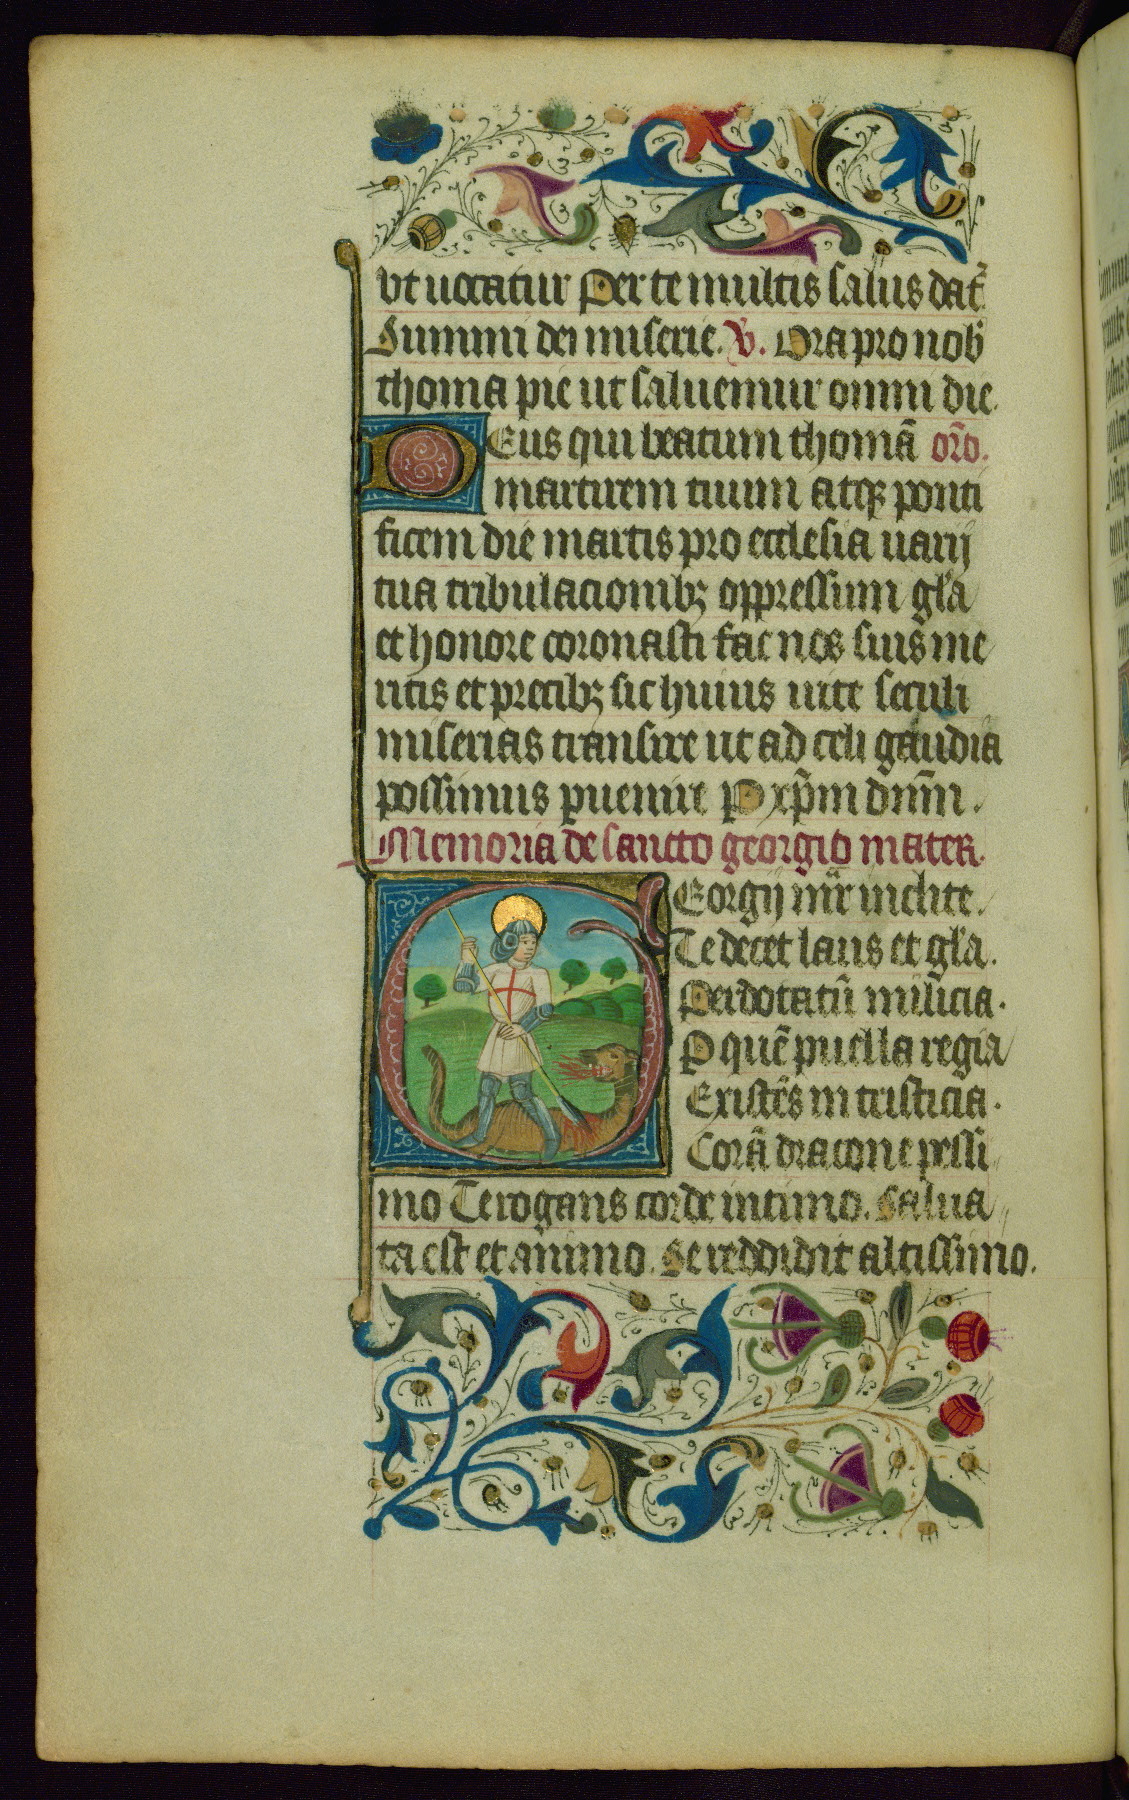 vt uocatur Per te multis salus dat᷑
Summi dei miserie. V. Ora pro nob̃
thoma pie ut saluemur omni die.
DEus qui beatum thomã or̃o.
martirem tuum atqꝫ ponti
ficem die martis pro ecclesia uarij
tua tribulacionibꝫ oppressum gl̃a
et honore coronasti fac nos suis me
ritis et precibꝫ sic huius uite seculi
miserias transire ut ad celi gaudia
possimus ꝑuenire P xp̃m dñm.
Memoria de sancto georgio mater.
GEorgij mr̃ inclite.
Te decet laus et gl̃a.
Predotatũ milicia.
P quẽ puella regia
Existẽs in tristicia.
Corã dracone pessi
mo Te rogans corde intimo. Salua
ta est et animo. Se reddidit altissimo.